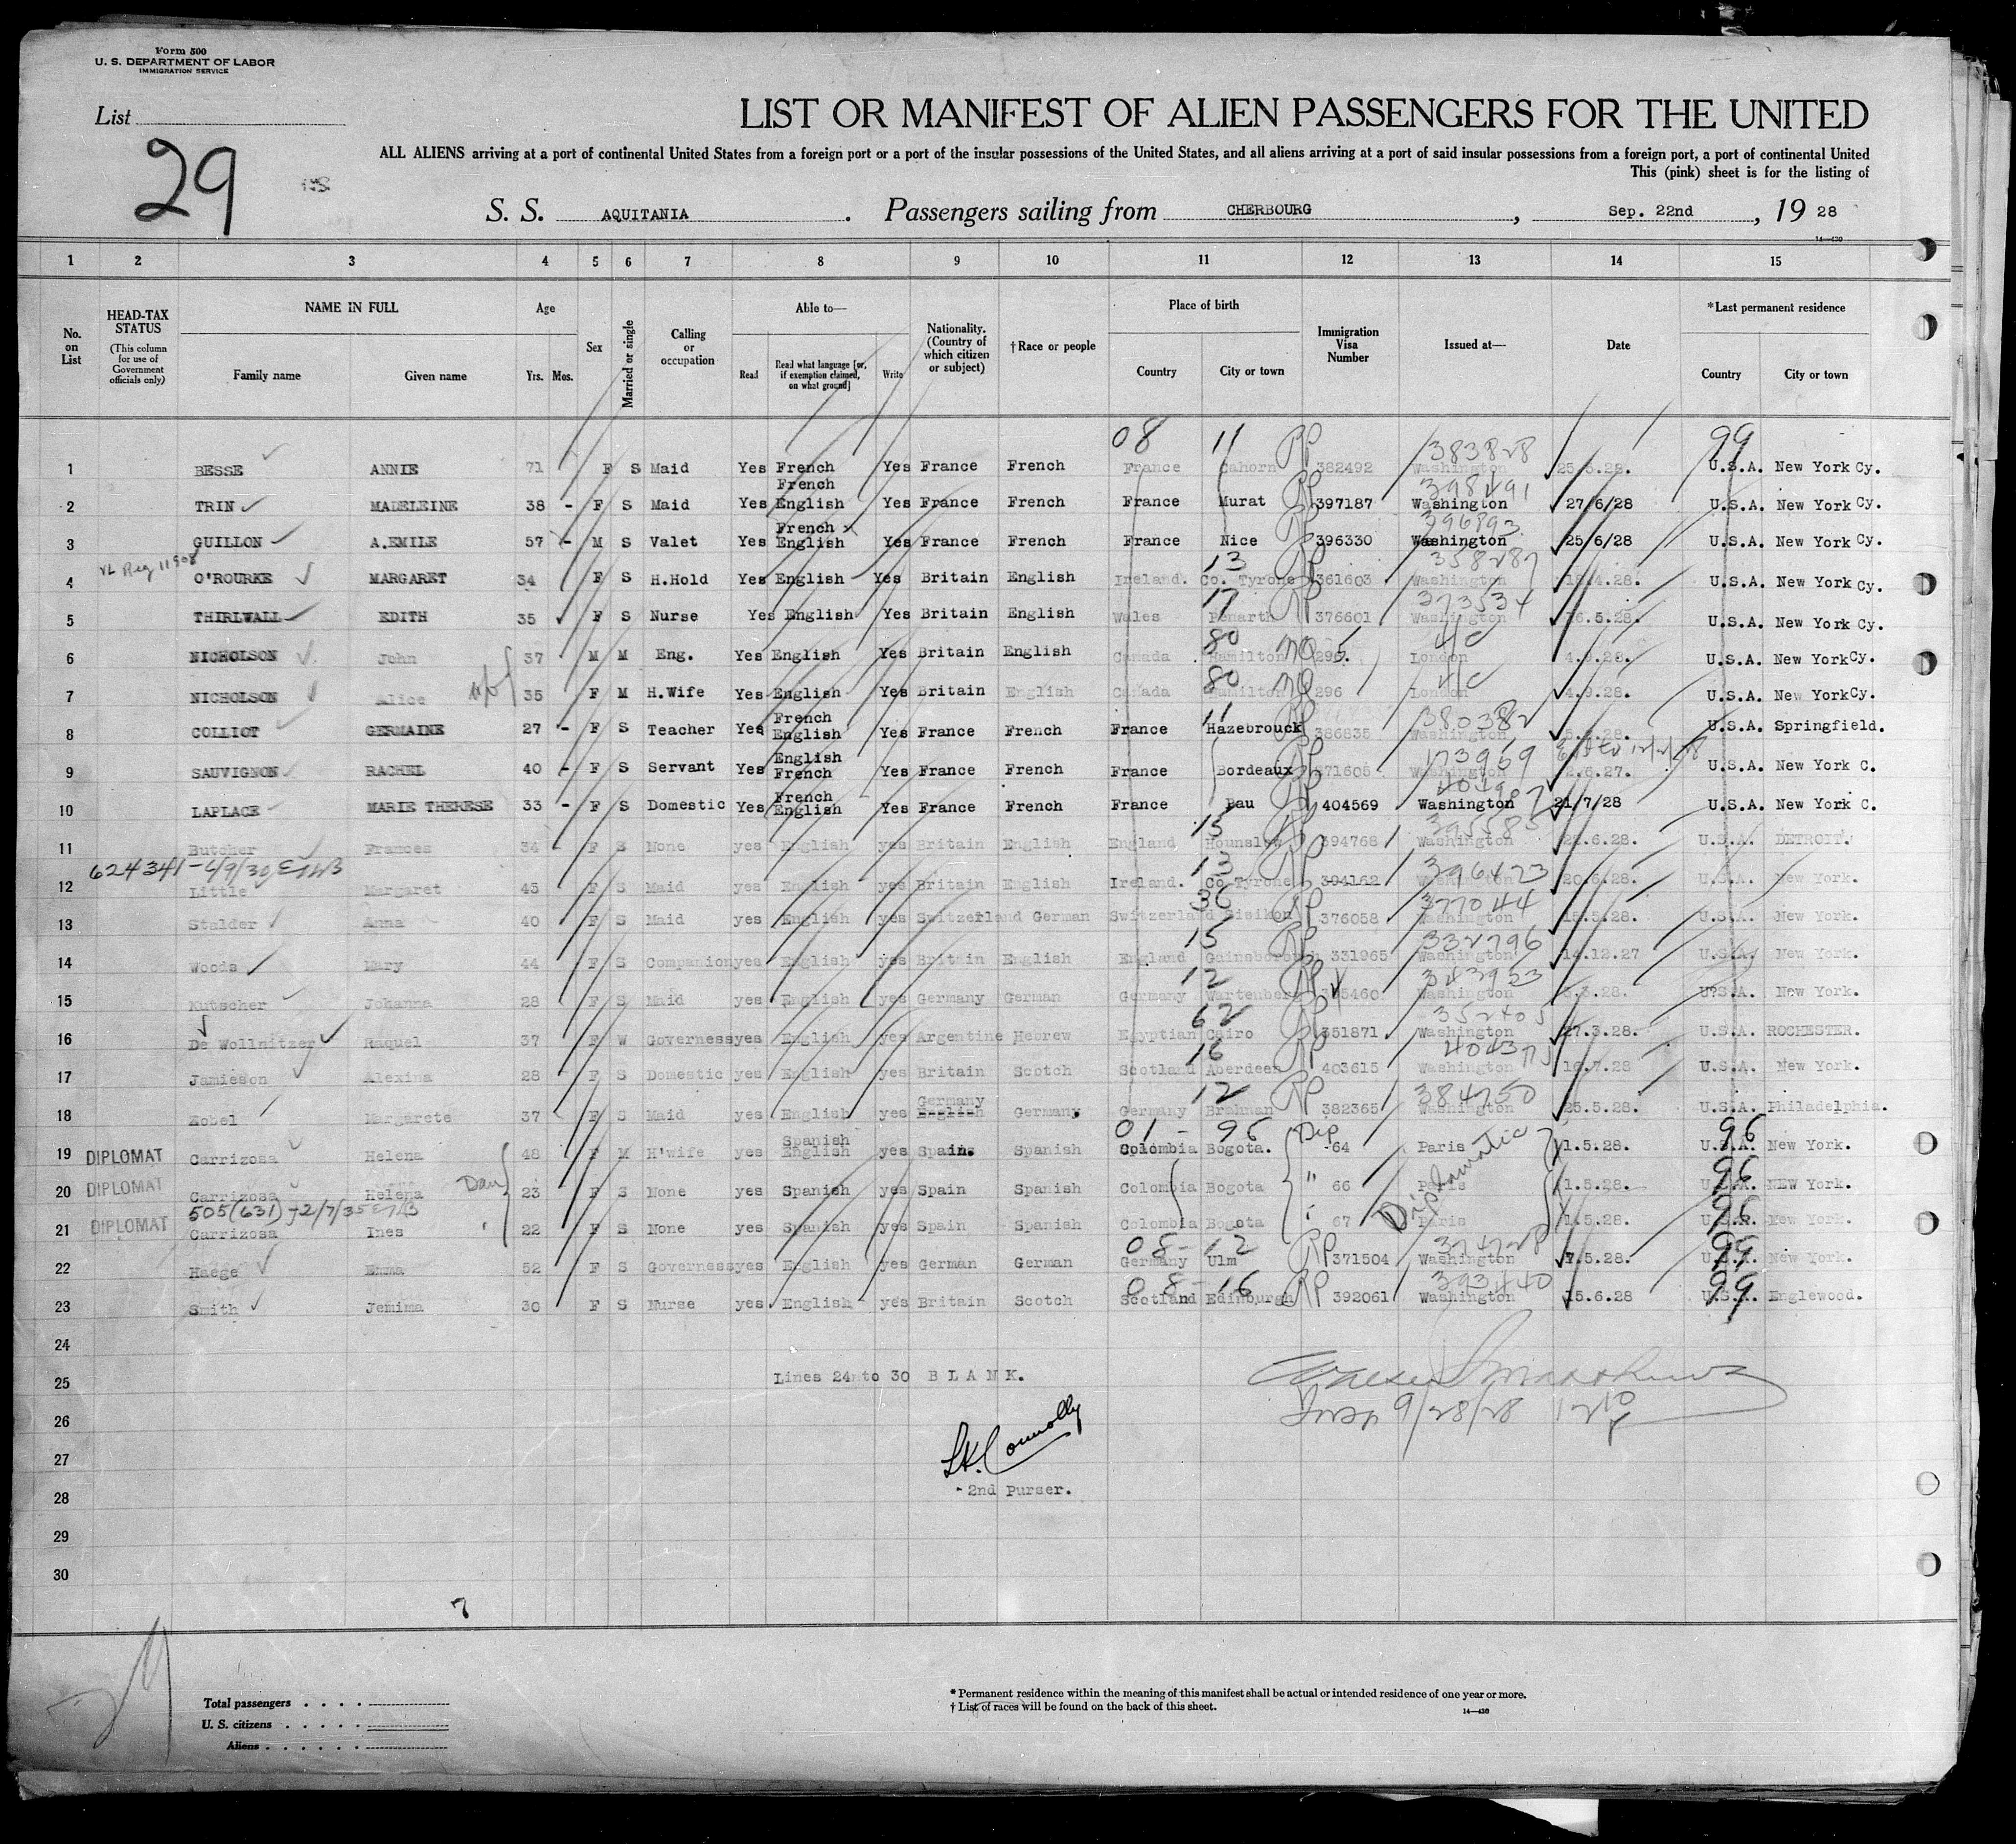 Form 500
U. S. DEPARTMENT OF LABOR
IMMIGRATION SERVICE
List
29
LIST OR MANIFEST OF ALIEN PASSENGERS FOR THE UNITED
ALL ALIENS arriving at a port of continental United States from a foreign port or a port of the insular possessions of the United States, and all aliens arriving at a port of said insular possessions from a foreign port, a port of continental United
This (pink) sheet is for the listing of
S. S. AQUITANIA. Passengers sailing from CHERBOURG, Sep. 22nd, 19 28
14—430
1 2 3 4 5 6 7 8 9 10 11 12 13 14 15
No. on List
HEAD-TAX STATUS (This column for use of Government officials only)
NAME IN FULL
Family name Given name
Age Yrs. Mos.
Sex
Married or single
Calling or occupation
Able to— Read Read what language [or, if exemption claimed, on what ground] Write
Nationality. (Country of which citizen or subject)
†Race or people
Place of birth Country City or town
Immigration Visa Number
Issued at—
Date
*Last permanent residence Country City or town
08 11 RP 383828 99
1 BESSE ANNIE 71 F S Maid Yes French Yes France French France Cahorn 382492 Washington 25.5.28. U.S.A. New York Cy.
French RP 398491
2 TRIN MADELEINE 38 - F S Maid Yes English Yes France French France Murat 397187 Washington 27/6/28 U.S.A. New York Cy.
French RP 396893
3 GUILLON A.EMILE 57 - M S Valet Yes English Yes France French France Nice 396330 Washington 25/6/28 U.S.A. New York Cy.
13 RP 358287
4 O'ROURKE MARGARET 34 F S H.Hold Yes English Yes Britain English Ireland. Co. Tyrone 361603 Washington .4.28. U.S.A. New York Cy.
17 RP 373534
5 THIRLWALL EDITH 35 F S Nurse Yes English Yes Britain English Wales Penarth 376601 Washington 16.5.28. U.S.A. New York Cy.
80
6 NICHOLSON John 37 M M Eng. Yes English Yes Britain English Canada Hamilton 295. London 4.9.28. U.S.A. New York Cy.
80
7 NICHOLSON Alice 35 F M H.Wife Yes English Yes Britain English Canada Hamilton 296 London 4.9.28. U.S.A. New York Cy.
French 11 RP 380382
8 COLLIOT GERMAINE 27 - F S Teacher Yes English Yes France French France Hazebrouck 386835 Washington U.S.A. Springfield.
English RP 173969
9 SAUVIGNON RACHEL 40 - F S Servant Yes French Yes France French France Bordeaux 171605 Washington 2.6.27. U.S.A. New York C.
French RP
10 LAPLACE MARIE THERESE 33 - F S Domestic Yes English Yes France French France Pau 404569 Washington 21/7/28 U.S.A. New York C.
15 RP 395585
11 Butcher Frances 34 F S None yes English yes Britain English England Hounslow 394768 Washington 22.6.28. U.S.A. DETROIT.
624341-4/9/30 13 RP 396423
12 Little Margaret 45 F S Maid yes English yes Britain English Ireland. Co Tyrone 394162 Washington 20.6.28. U.S.A. New York.
36 RP 377044
13 Stalder Anna 40 F S Maid yes English yes Switzerland German Switzerland Sisikon 376058 Washington 15.5.28. U.S.A. New York.
15 RP 332796
14 Woods Mary 44 F S Companion yes English yes Britain English England Gainsborough 331965 Washington 14.12.27 U.S.A. New York.
12 RP 343923
15 Kutscher Johanna 28 F S Maid yes English yes Germany German Germany Wartenberg 345460 Washington .3.28. U.S.A. New York.
62 RP 352405
16 De Wollnitzer Raquel 37 F W Governess yes English yes Argentine Hebrew Egyptian Cairo 351871 Washington 27.3.28. U.S.A. ROCHESTER.
16 RP
17 Jamieson Alexina 28 F S Domestic yes English yes Britain Scotch Scotland Aberdeen 403615 Washington 16.7.28 U.S.A. New York.
Germany 12 RP 384750
18 Zobel Margarete 37 F S Maid yes English yes English Germany Germany 382365 Washington 25.5.28. U.S.A. Philadelphia.
Spanish 01 - 96 Dip 96
19 DIPLOMAT Carrizosa Helena 48 F M H'wife yes English yes Spain. Spanish Colombia Bogota. 64 Paris Diplomatic 1.5.28. U.S.A. New York.
96
20 DIPLOMAT Carrizosa Helena Dau 23 F S None yes Spanish yes Spain Spanish Colombia Bogota " 66 Paris 1.5.28. U.S.A. NEW York.
505(631) 96
21 DIPLOMAT Carrizosa Ines 22 F S None yes Spanish yes Spain Spanish Colombia Bogota 67 Paris 1.5.28. U.S.A. New York.
08 - 12 RP 374728 99
22 Haege Emma 52 F S Governess yes English yes German German Germany Ulm 371504 Washington 7.5.28. U.S.A. New York.
08 - 16 RP 393440 99
23 Smith Jemima 30 F S Nurse yes English yes Britain Scotch Scotland Edinburgh 392061 Washington 15.6.28 U.S.A. Englewood.
24
25 Lines 24 to 30 B L A N K.
26 Insp 9/28/28
27 Connolly
28 - 2nd Purser.
29
30
7
29
Total passengers . . . .
U. S. citizens . . . . .
Aliens . . . . . .
* Permanent residence within the meaning of this manifest shall be actual or intended residence of one year or more.
† List of races will be found on the back of this sheet.
14—430